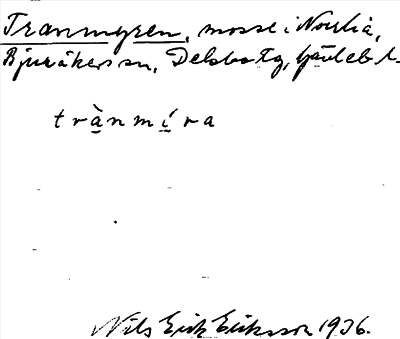 Tranmyren, mosse i Norrlia,
Bjuråkers sn, Delsbo tg, Gävleb. l.
trànmíra
Nils Erik Eriksson 1936.